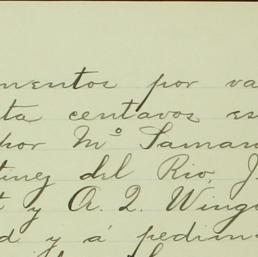 mentos por va
ta centavos es
por Mº Saman
tinez del Rio, J.
t y A. Q. Wing
d y á pedim